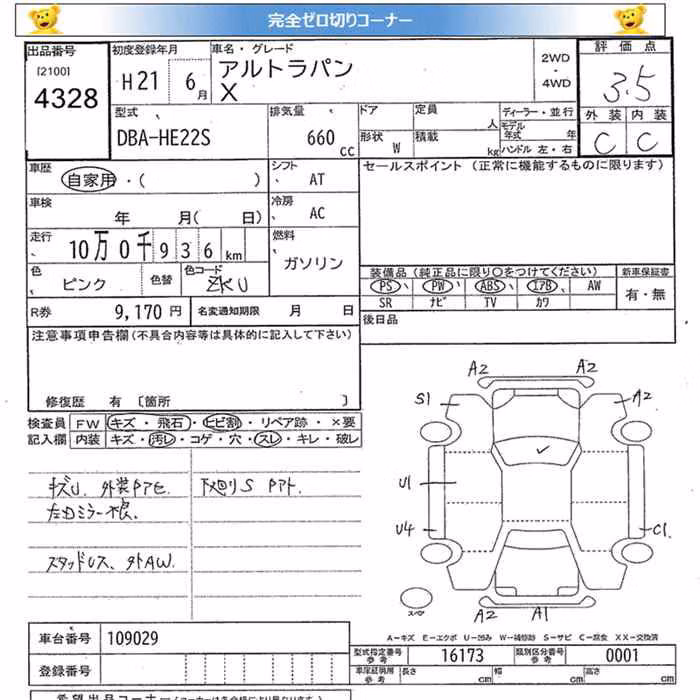 完全ゼロ切りコーナー
出品番号
[2100]
4328
初度登録年月
H21 6月
車名・グレード
アルトラパン
X
2WD
・
4WD
評価点
3.5
外装 内装
C C
型式
DBA-HE22S
排気量
660 CC
ドア
定員 人
形状 W
積載 kg
ディーラー・並行
モデル年式 年
ハンドル 左・右
車歴
自家用・( )
シフト
AT
車検
年 月( 日)
冷房
AC
走行
10万0千936km
燃料
ガソリン
色
ピンク
色替
色コード
ZKU
R券
9,170円
名変通知期限 月 日
セールスポイント (正常に機能するものに限ります)
装備品(純正品に限り○をつけてください)
PS PW ABS エアB AW
SR ナビ TV カワ
新車保証書
有・無
後日品
注意事項申告欄(不具合内容等は具体的に記入して下さい)
修復歴 有 〔箇所 〕
検査員記入欄
FW キズ・飛石・ヒビ割・リペア跡・×要
内装 キズ・汚レ・コゲ・穴・スレ・キレ・破レ
キズU、外装PアセS
下廻りS Pアト、
左Dミラー根。
スタッドレス、外AW。
A2 A2
S1 A2
U1
U4 C1
スペア
A2 A1
A－キズ E－エクボ U－凹み W－補修跡 S－サビ C－腐食 XX－交換済
車台番号 109029
登録番号
型式指定番号参考 16173
類別区分番号参考 0001
車庫証明用参考 長さ 幅 高さ
希望出品コーナー